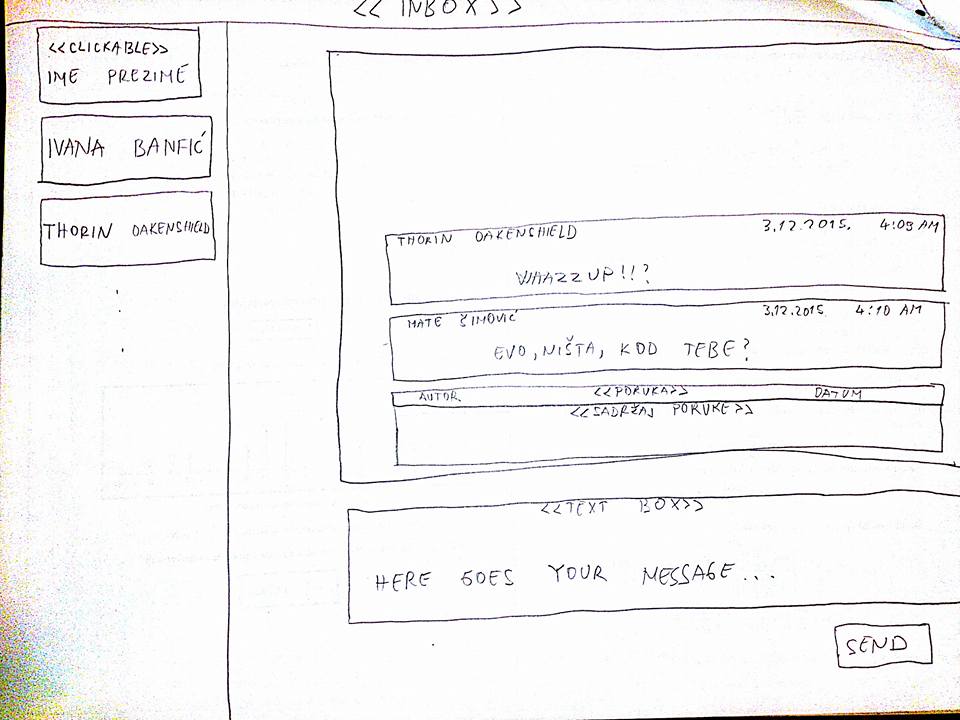 << INBOX >>
<<CLICKABLE>>
IME PREZIME
IVANA BANFIĆ
THORIN OAKENSHIELD
THORIN OAKENSHIELD 3.12.2015. 4:09 AM
WHAZZUP!!?
MATE ŠIMOVIĆ 3.12.2015 4:10 AM
EVO, NIŠTA, KOD TEBE?
AUTOR <<PORUKA>> DATUM
<<SADRŽAJ PORUKE>>
<<TEXT BOX>>
HERE GOES YOUR MESSAGE...
SEND